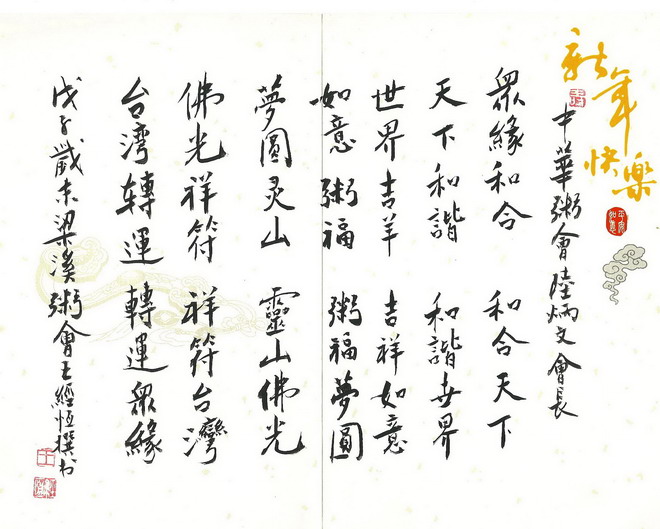 新年快樂
中華粥會陸炳文會長
眾緣和合 和合天下
天下和諧 和諧世界
世界吉羊 吉祥如意
如意粥福 粥福夢圓
夢圓灵山 靈山佛光
佛光祥符 祥符台灣
台湾轉運 轉運眾緣
戊子歲末梁溪粥會王經恒撰书